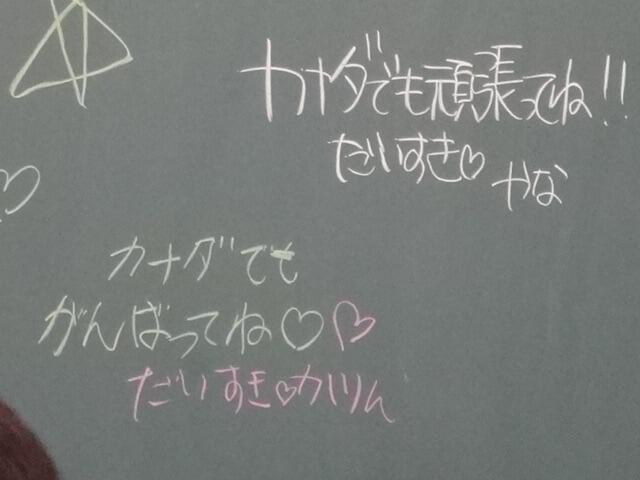 カナダでも頑張ってね!!
だいすき♡ やな
カナダでも
がんばってね♡♡
だいすき♡かりん